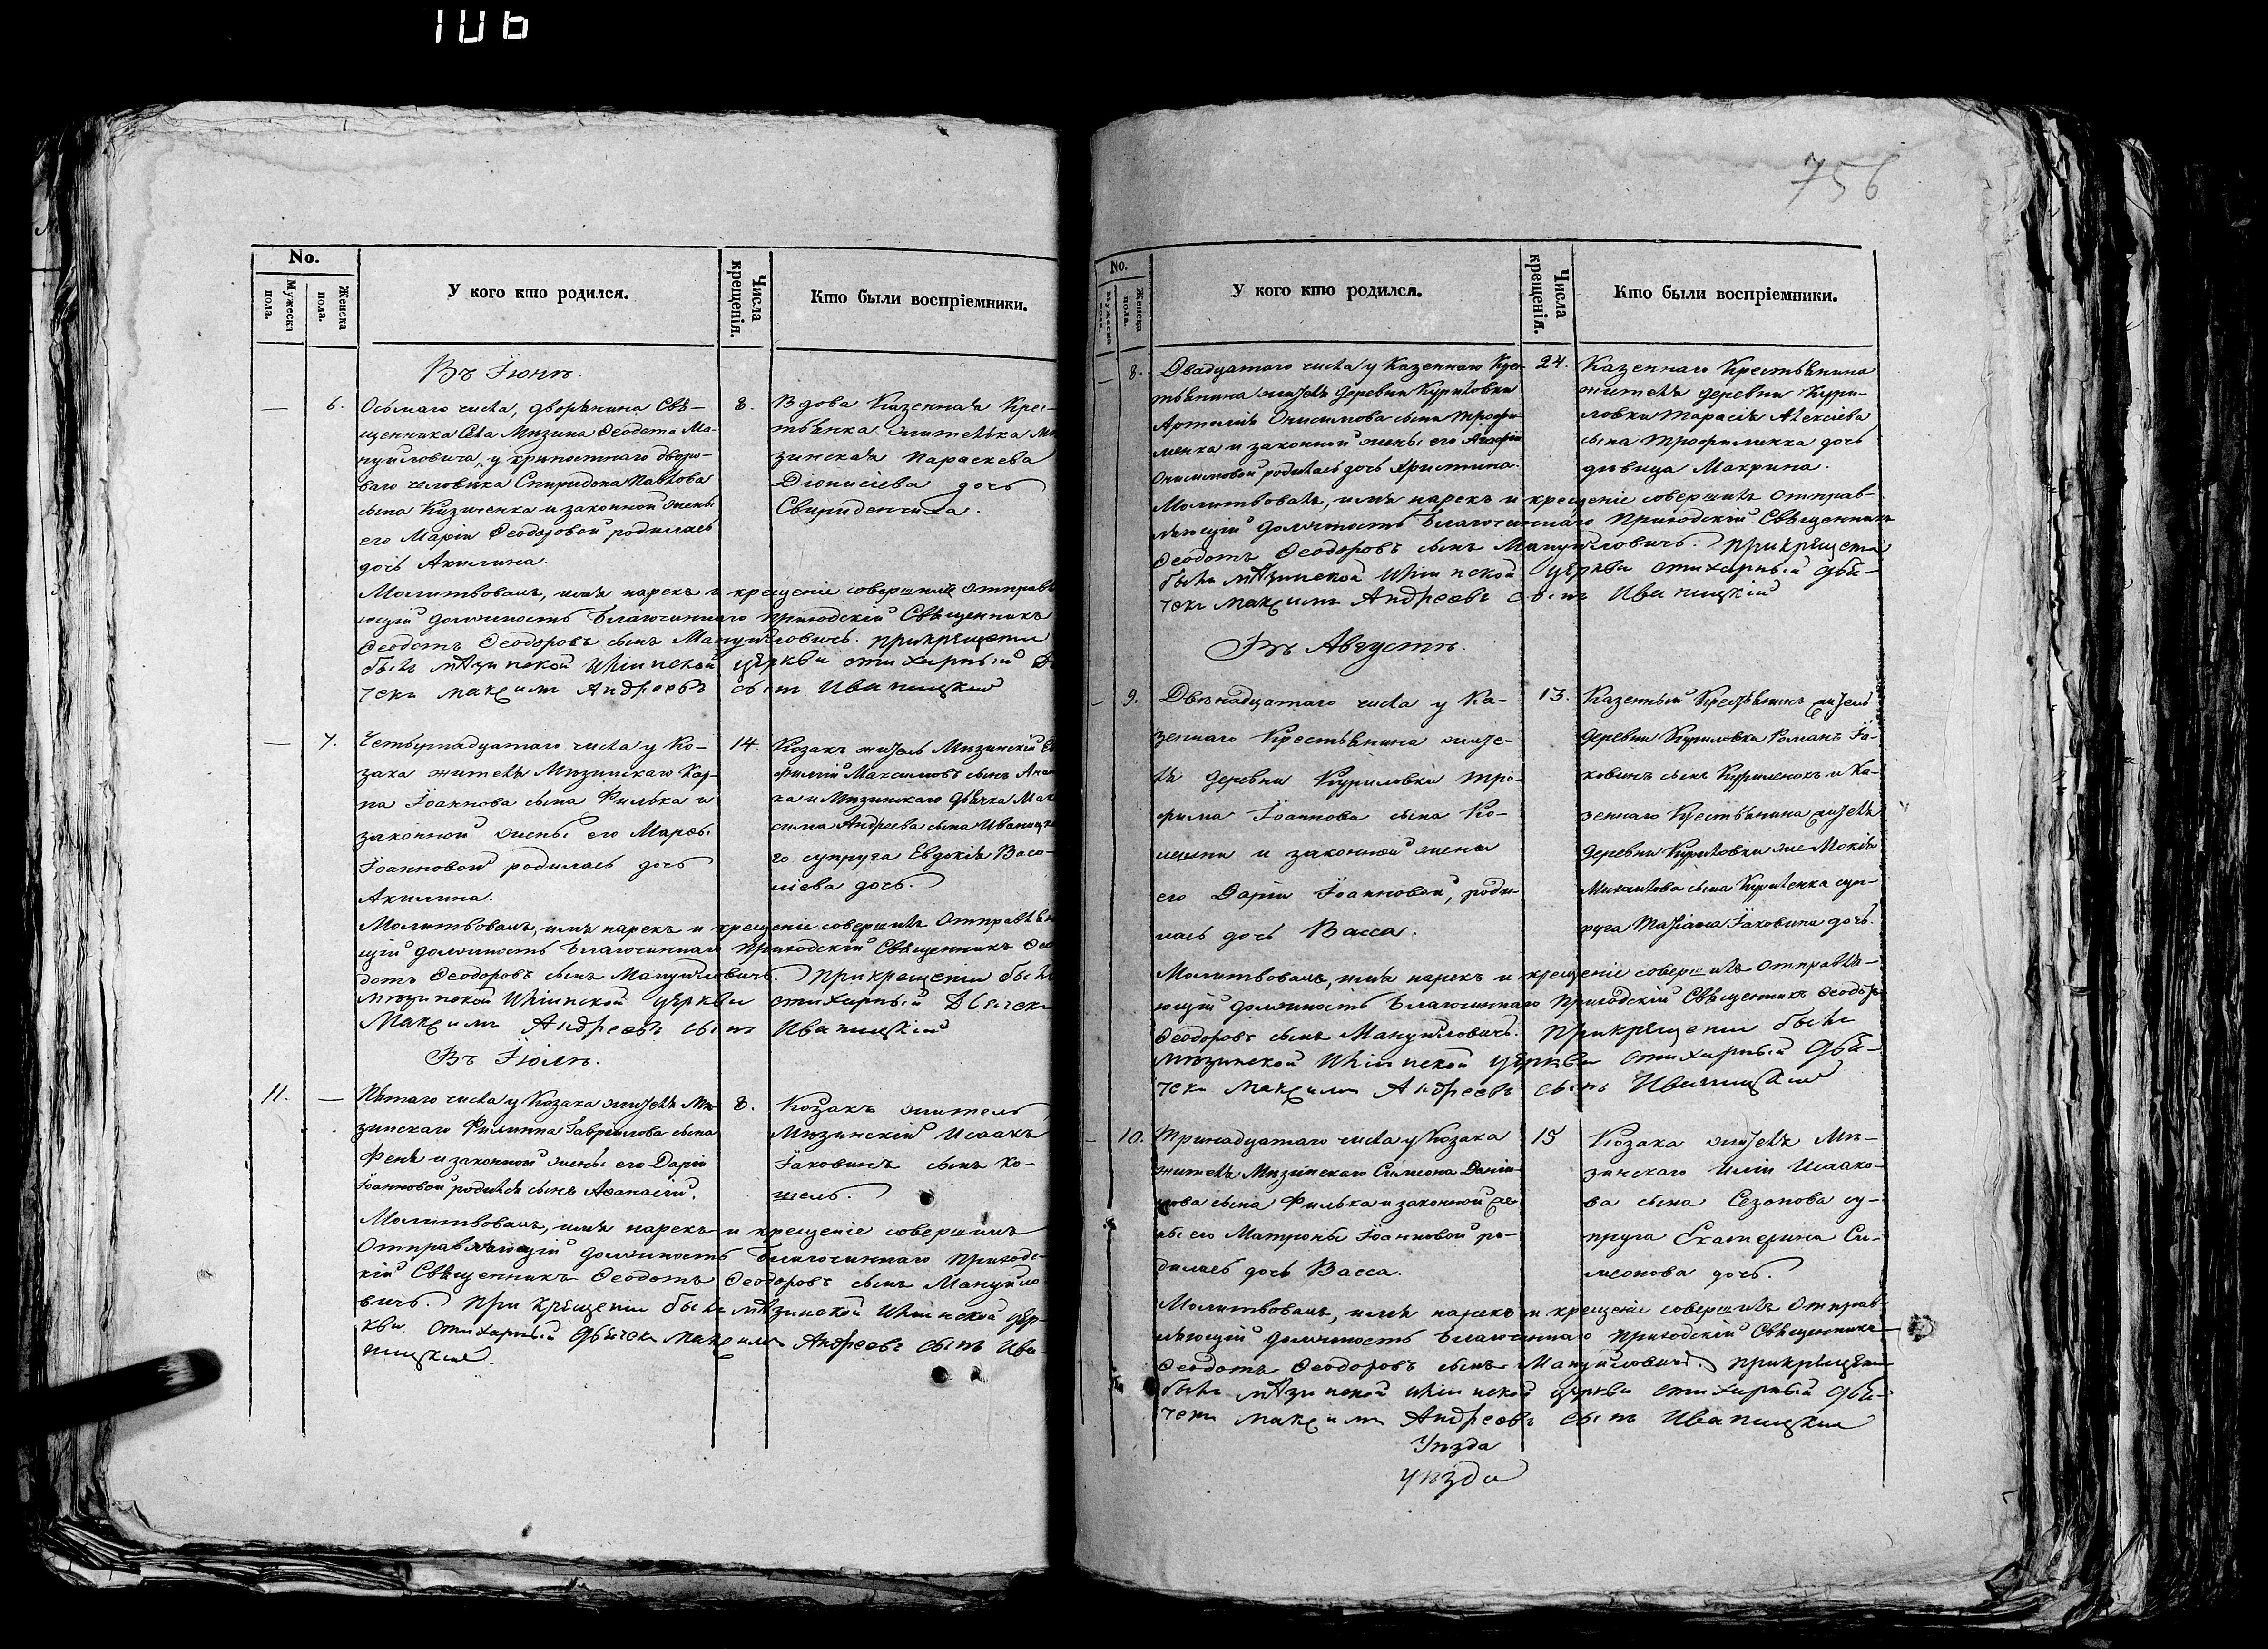 106
No.
Мужеска пола.
Женска пола.
У кого кто родился.
Числа крещенія.
Кто были воспріемники.
Въ Їюнѣ.
— 6. Осьмаго числа, дворянина Свя-
щенника села Мизина Ѳеодота Ма-
нуиловича, у крипостнаго дворо-
ваго человѣка Спиридона Павлова
сына Кизиченка и законной жены
его Маріи Ѳеодоровой родилась
дочь Акилина.
8.
Вдова Казенная Крес-
тьянка жителька Мѣ
зинская Параскева
Діонисіева дочь
Свириденчиха.
Молитвовалъ, имя нарекъ и крещеніе совершилъ Отправл
ющій должность Благочиннаго Приходскій Священникъ
Ѳеодотъ Ѳеодоровъ сынъ Мануйловичъ. при крещеніи
былъ мѣзинской церкви стихарный
чокъ максимъ Андреевъ сынъ Иваницкій
— 7. Четырнадцатаго числа у Ко-
зака жителя Мѣзинскаго Кар-
па Їоаннова сына Филька и
законной жены его Марѳы
Їоанновой родилась дочь
Акилина.
14.
Козакъ житель Мѣзинскій
фимій Максимовъ сынъ
ка и Мѣзинскаго Дьячка Мак
сима Андреева сына Иваницка
го супруга Евдокія Васи-
ліева дочь.
Молитвовалъ, имя нарекъ и крещеніе совершилъ Отправляю
щій должность Благочиннаго Приходскій Священникъ Ѳео
дотъ Ѳеодоровъ сынъ Мануйловичъ. При крещеніи былъ
мѣзинской церкви стихарный Дьячекъ
Максимъ Андреевъ сынъ Иваницкій
Въ Їюлѣ.
11. — Пятаго числа у Козака жителя Мѣ
зинскаго Филиппа Гавріилова сына
Феня и законной жены его Даріи
Їоанновой родился сынъ Аѳанасій.
8.
Козакъ житель
Мѣзинскій Исаакъ
Їаковинъ сынъ Ко-
шель.
Молитвовалъ, имя нарекъ и крещеніе совершилъ
Отправляющій должность Благочиннаго Приходс-
кій Священникъ Ѳеодотъ Ѳеодоровъ сынъ Мануйло
вичъ. при крещеніи былъ мѣзинской цер-
кви стихарный дьячекъ Максимъ Андреевъ сынъ Ива-
ницкій.
756
No.
Мужеска пола.
Женска пола.
У кого кто родился.
Числа крещенія.
Кто были воспріемники.
— 8. Двадцатаго числа у Казеннаго Крес-
тьянина жителя деревни Куриловки
Артемія Онисимова сына Трофи-
менка и законной жены его Агафіи
Онисимовой родилась дочь Христина.
24.
Казеннаго Крестьянина
жителя деревни Кури-
ловки Тарасія Алексіева
сына Трофименка дочь
дѣвица Макрина.
Молитвовалъ, имя нарекъ и крещеніе совершилъ Отправ-
ляющій должность Благочиннаго Приходскій Священникъ
Ѳеодотъ Ѳеодоровъ сынъ Мануйловичъ. при крещеніи
былъ мѣзинской церкви стихарный дья-
чекъ максимъ Андреевъ сынъ Иваницкій
Въ Августѣ.
— 9. Двѣнадцатаго числа у Ка-
зеннаго Крестьянина жите-
ля деревни Куриловки Тро-
фима Їоаннова сына Ко-
и законной жены
его Даріи Їоанновой, роди-
лась дочь Васса.
13.
Казенный Крестьянинъ житель
деревни Куриловки Романъ Їа-
ковинъ сынъ Куриленокъ и Ка-
зеннаго Крестьянина жителя
деревни Куриловки же Мокія
Михайлова сына Куриленка суп-
руга Татіана Їаковина дочь.
Молитвовалъ, имя нарекъ и крещеніе совершилъ Отправля-
ющій должность Благочиннаго Приходскій Священникъ Ѳеодотъ
Ѳеодоровъ сынъ Мануйловичъ. При крещеніи былъ
мѣзинской церкви стихарный дья-
чекъ максимъ Андреевъ сынъ Иваницкій
— 10. Тринадцатаго числа у Козака
жителя Мѣзинскаго Симеона Даніи-
лова сына Филька и законной же-
ны его Матроны Їоанновой ро-
дилась дочь Васса.
15
Козака жителя Мѣ-
зинскаго Иліи Исаако-
ва сына Сезонова су-
пруга Екатерина Си-
меонова дочь.
Молитвовалъ, имя нарекъ и крещеніе совершилъ Отправ-
ляющій должность Благочиннаго Приходскій Священникъ
Ѳеодотъ Ѳеодоровъ сынъ Мануйловичъ. при крещеніи
былъ мѣзинской церкви стихарный дья-
чекъ максимъ Андреевъ сынъ Иваницкій
Уѣзда
уѣзда